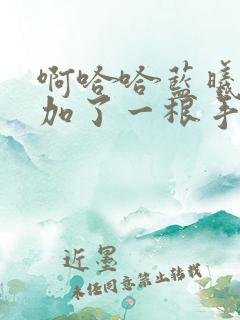 啊哈哈蓝曦
加了一根手
近墨
未经同意禁止转载